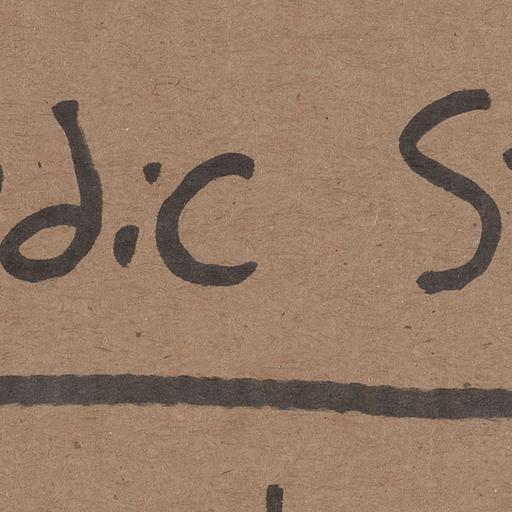 dic S